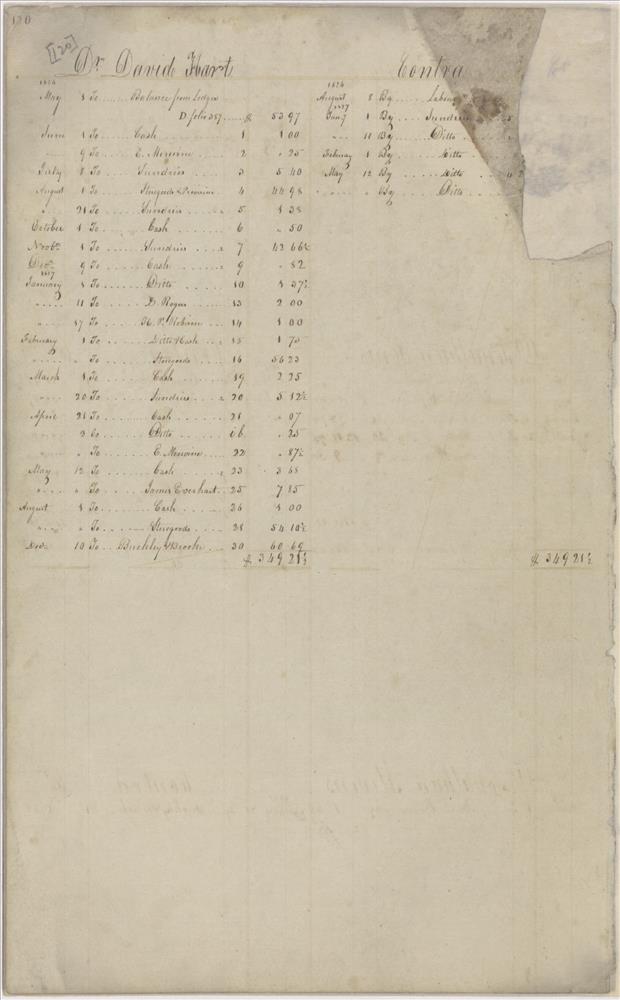 120
[120]
Dr. David Hart Contra
May 1 To Balance from Ledger
D folio 357 $ 53 97
June 1 To Cash 1 1 00
" 9 To E. Merwine 2 " 25
July 8 To Sundries 3 5 40
August 1 To 4 44 98
" 21 To Sundries 5 1 38
October 1 To Cash 6 " 50
Novbr. 1 To Sundries 7 43 66½
Decr. 9 To Cash 9 " 82
1827
January 1 To Ditto 10 1 37½
" 11 To D. Rogers 13 2 00
" 17 To 14 1 00
February 1 To Ditto & Cash 15 1 75
" " To Storegoods 16 56 23
March 1 To Cash 19 2 25
" 20 To Sundries 20 5 12½
April 21 To Cash 21 " 07
" Ditto ib. " 25
" " To E. Merwine 22 " 87½
May 12 To Cash 23 3 68
" " To James Everhart 25 7 85
August 1 To Cash 26 1 00
" " To Storegoods 28 54 10½
Novr. 10 To Buckley & Brook 30 60 69
$ 349 21½
1826
August 8 By Labour
1827
Jany 1 By Sundries
" 11 By Ditto
February 1 By Ditto
May 12 By Ditto
" " By Ditto
$ 349 21½